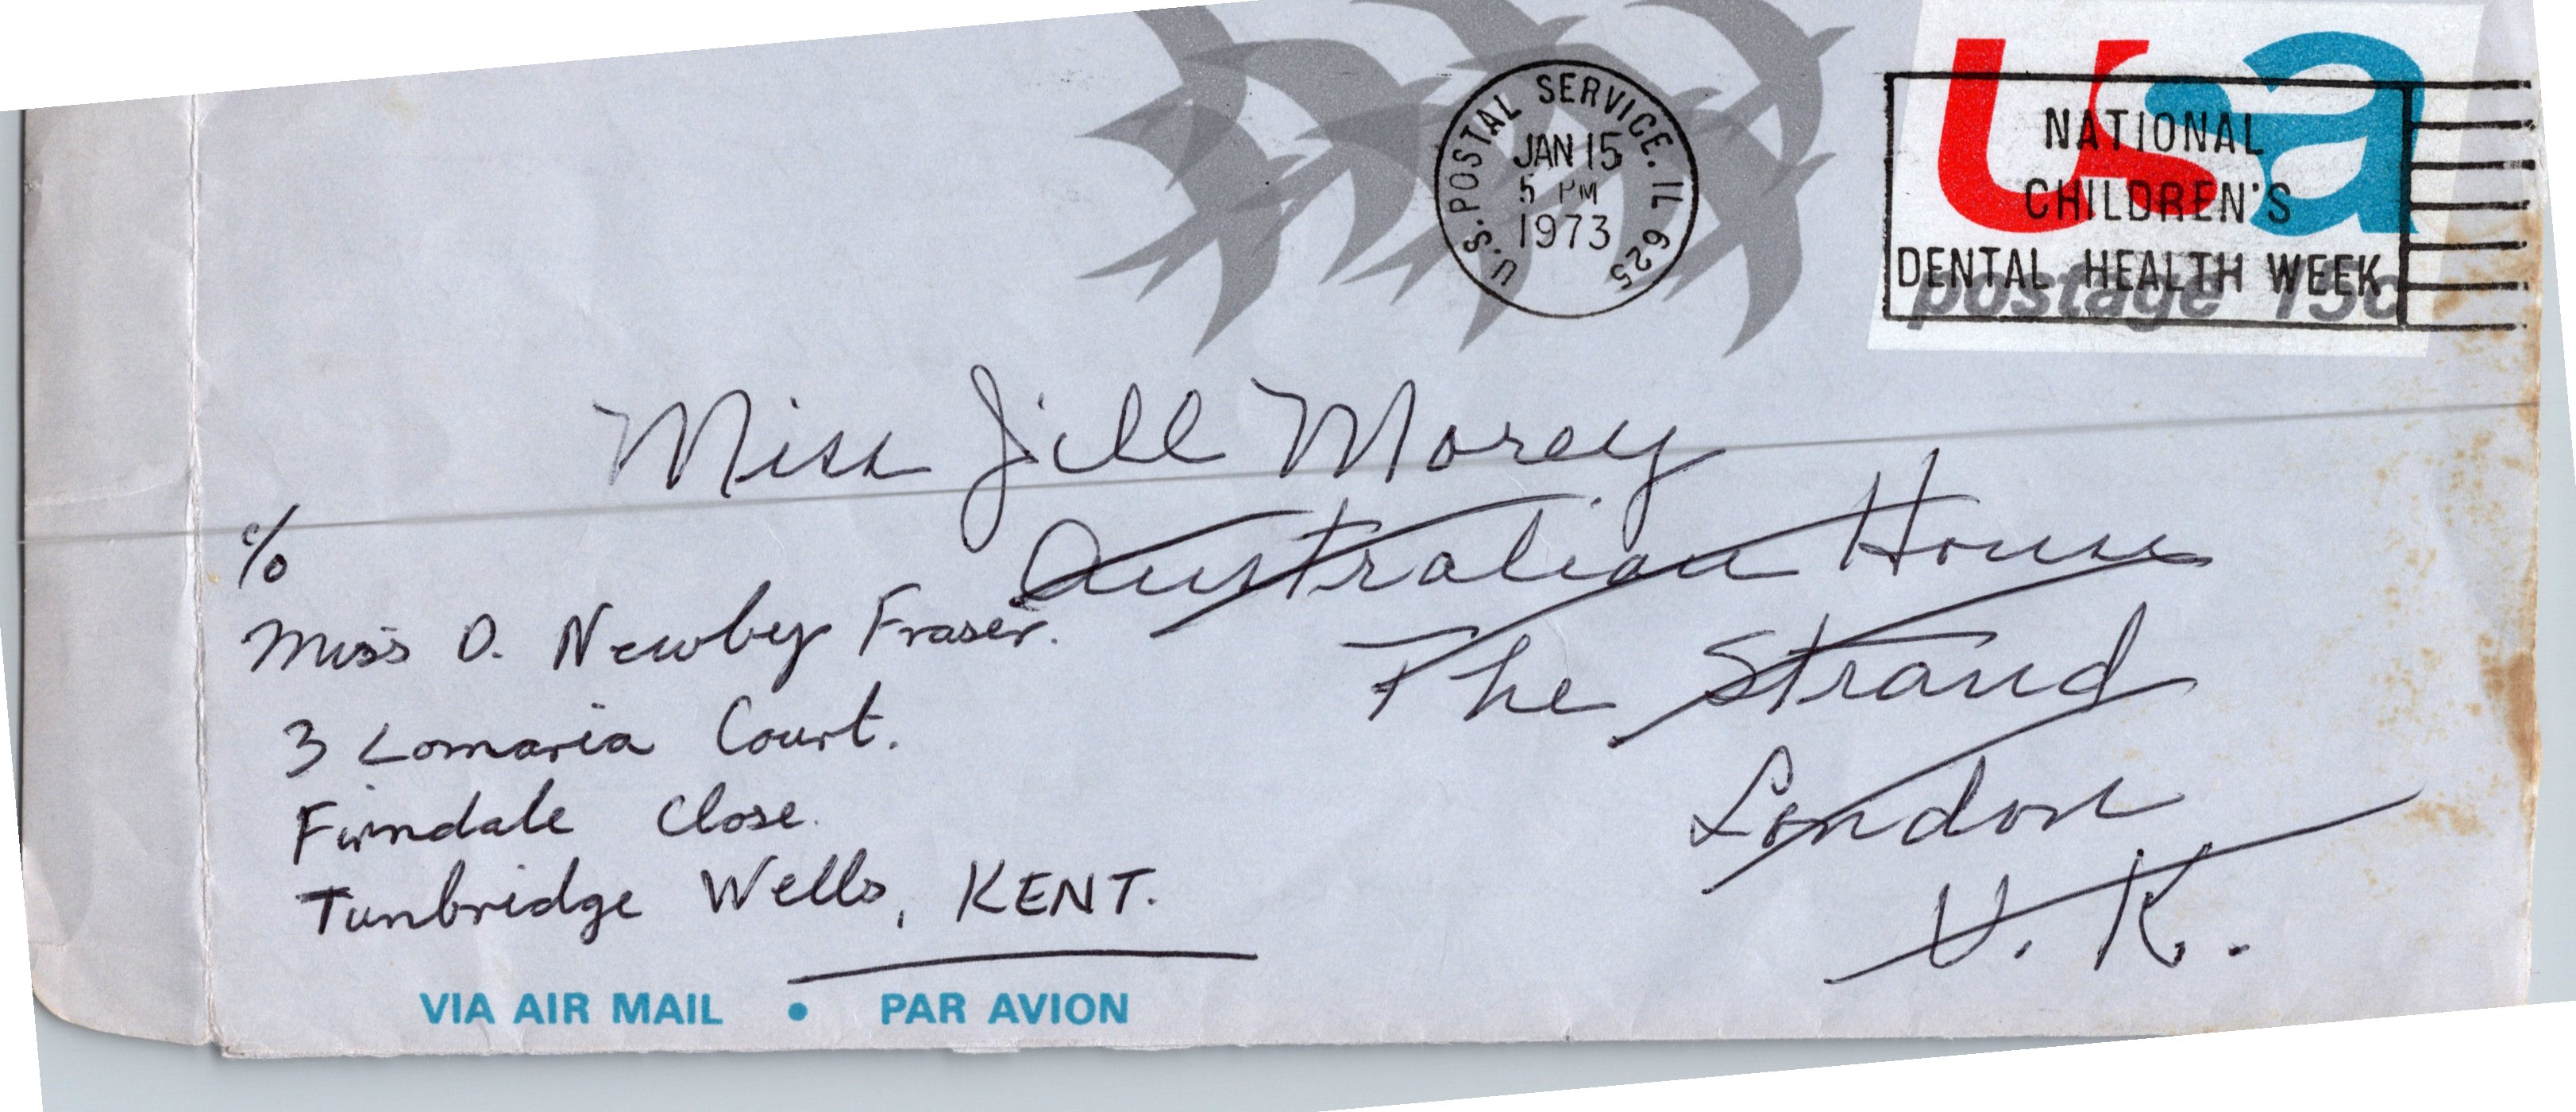 usa
postage 15c
U.S. POSTAL SERVICE. IL 625
JAN 15
5 PM
1973
NATIONAL
CHILDREN'S
DENTAL HEALTH WEEK
Miss Jill Morey
Australian House
The Strand
London
U.K.
c/o
Miss D. Newby Fraser.
3 Lomaria Court.
Firndale Close.
Tunbridge Wells, KENT.
VIA AIR MAIL • PAR AVION